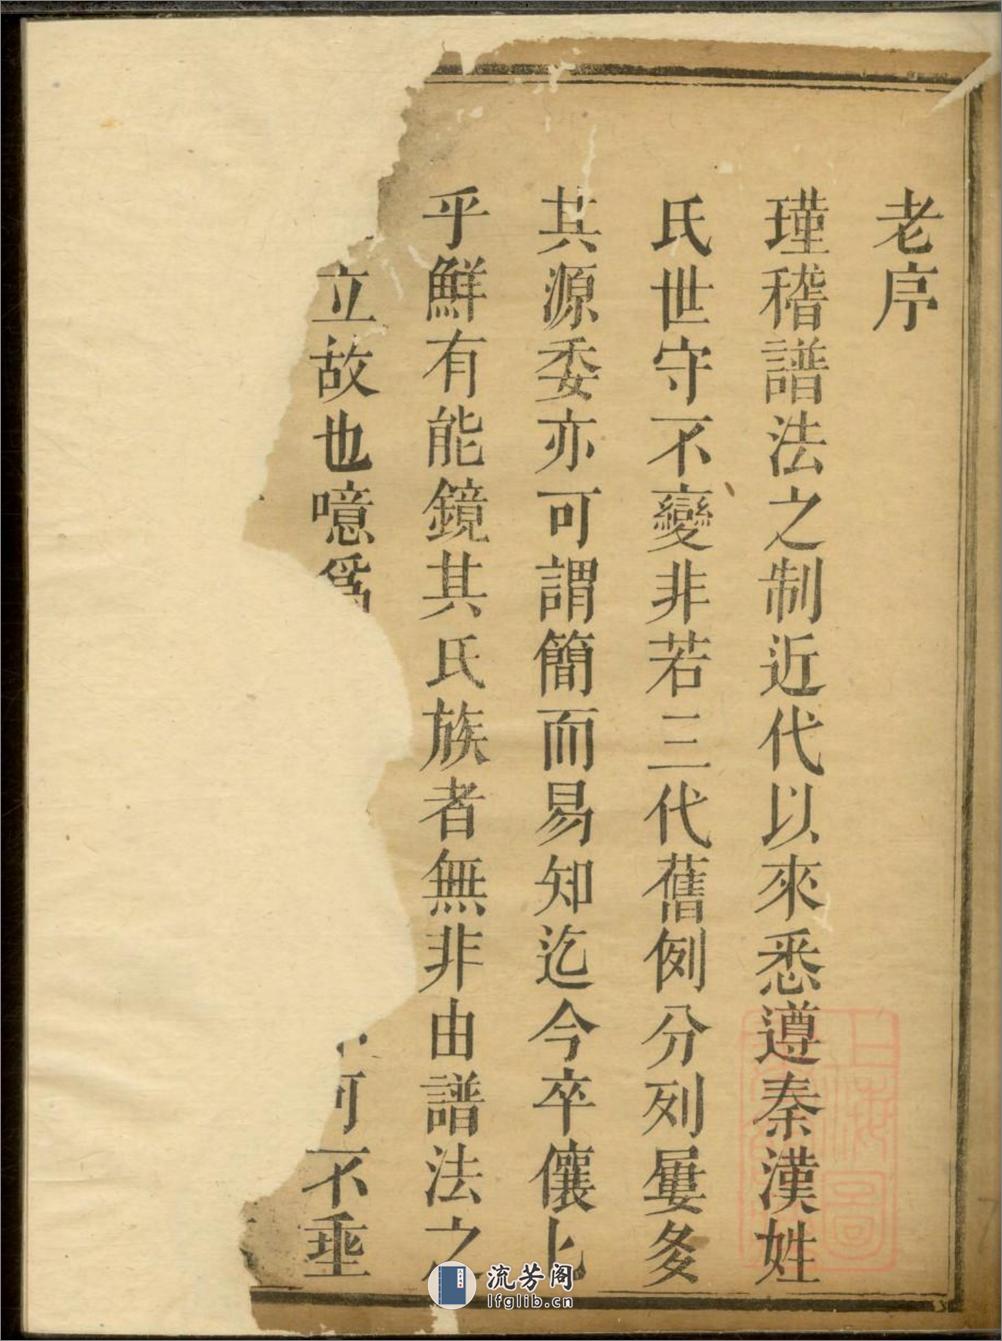 老序
瑾稽譜法之制近代以來悉遵秦漢姓
氏世守不變非若三代舊例分列屢多
其源委亦可謂簡而易知迄今卒儴
乎鮮有能鏡其氏族者無非由譜法之
立故也噫為
可不垂
上海圖
流芳阁
lfglib.cn